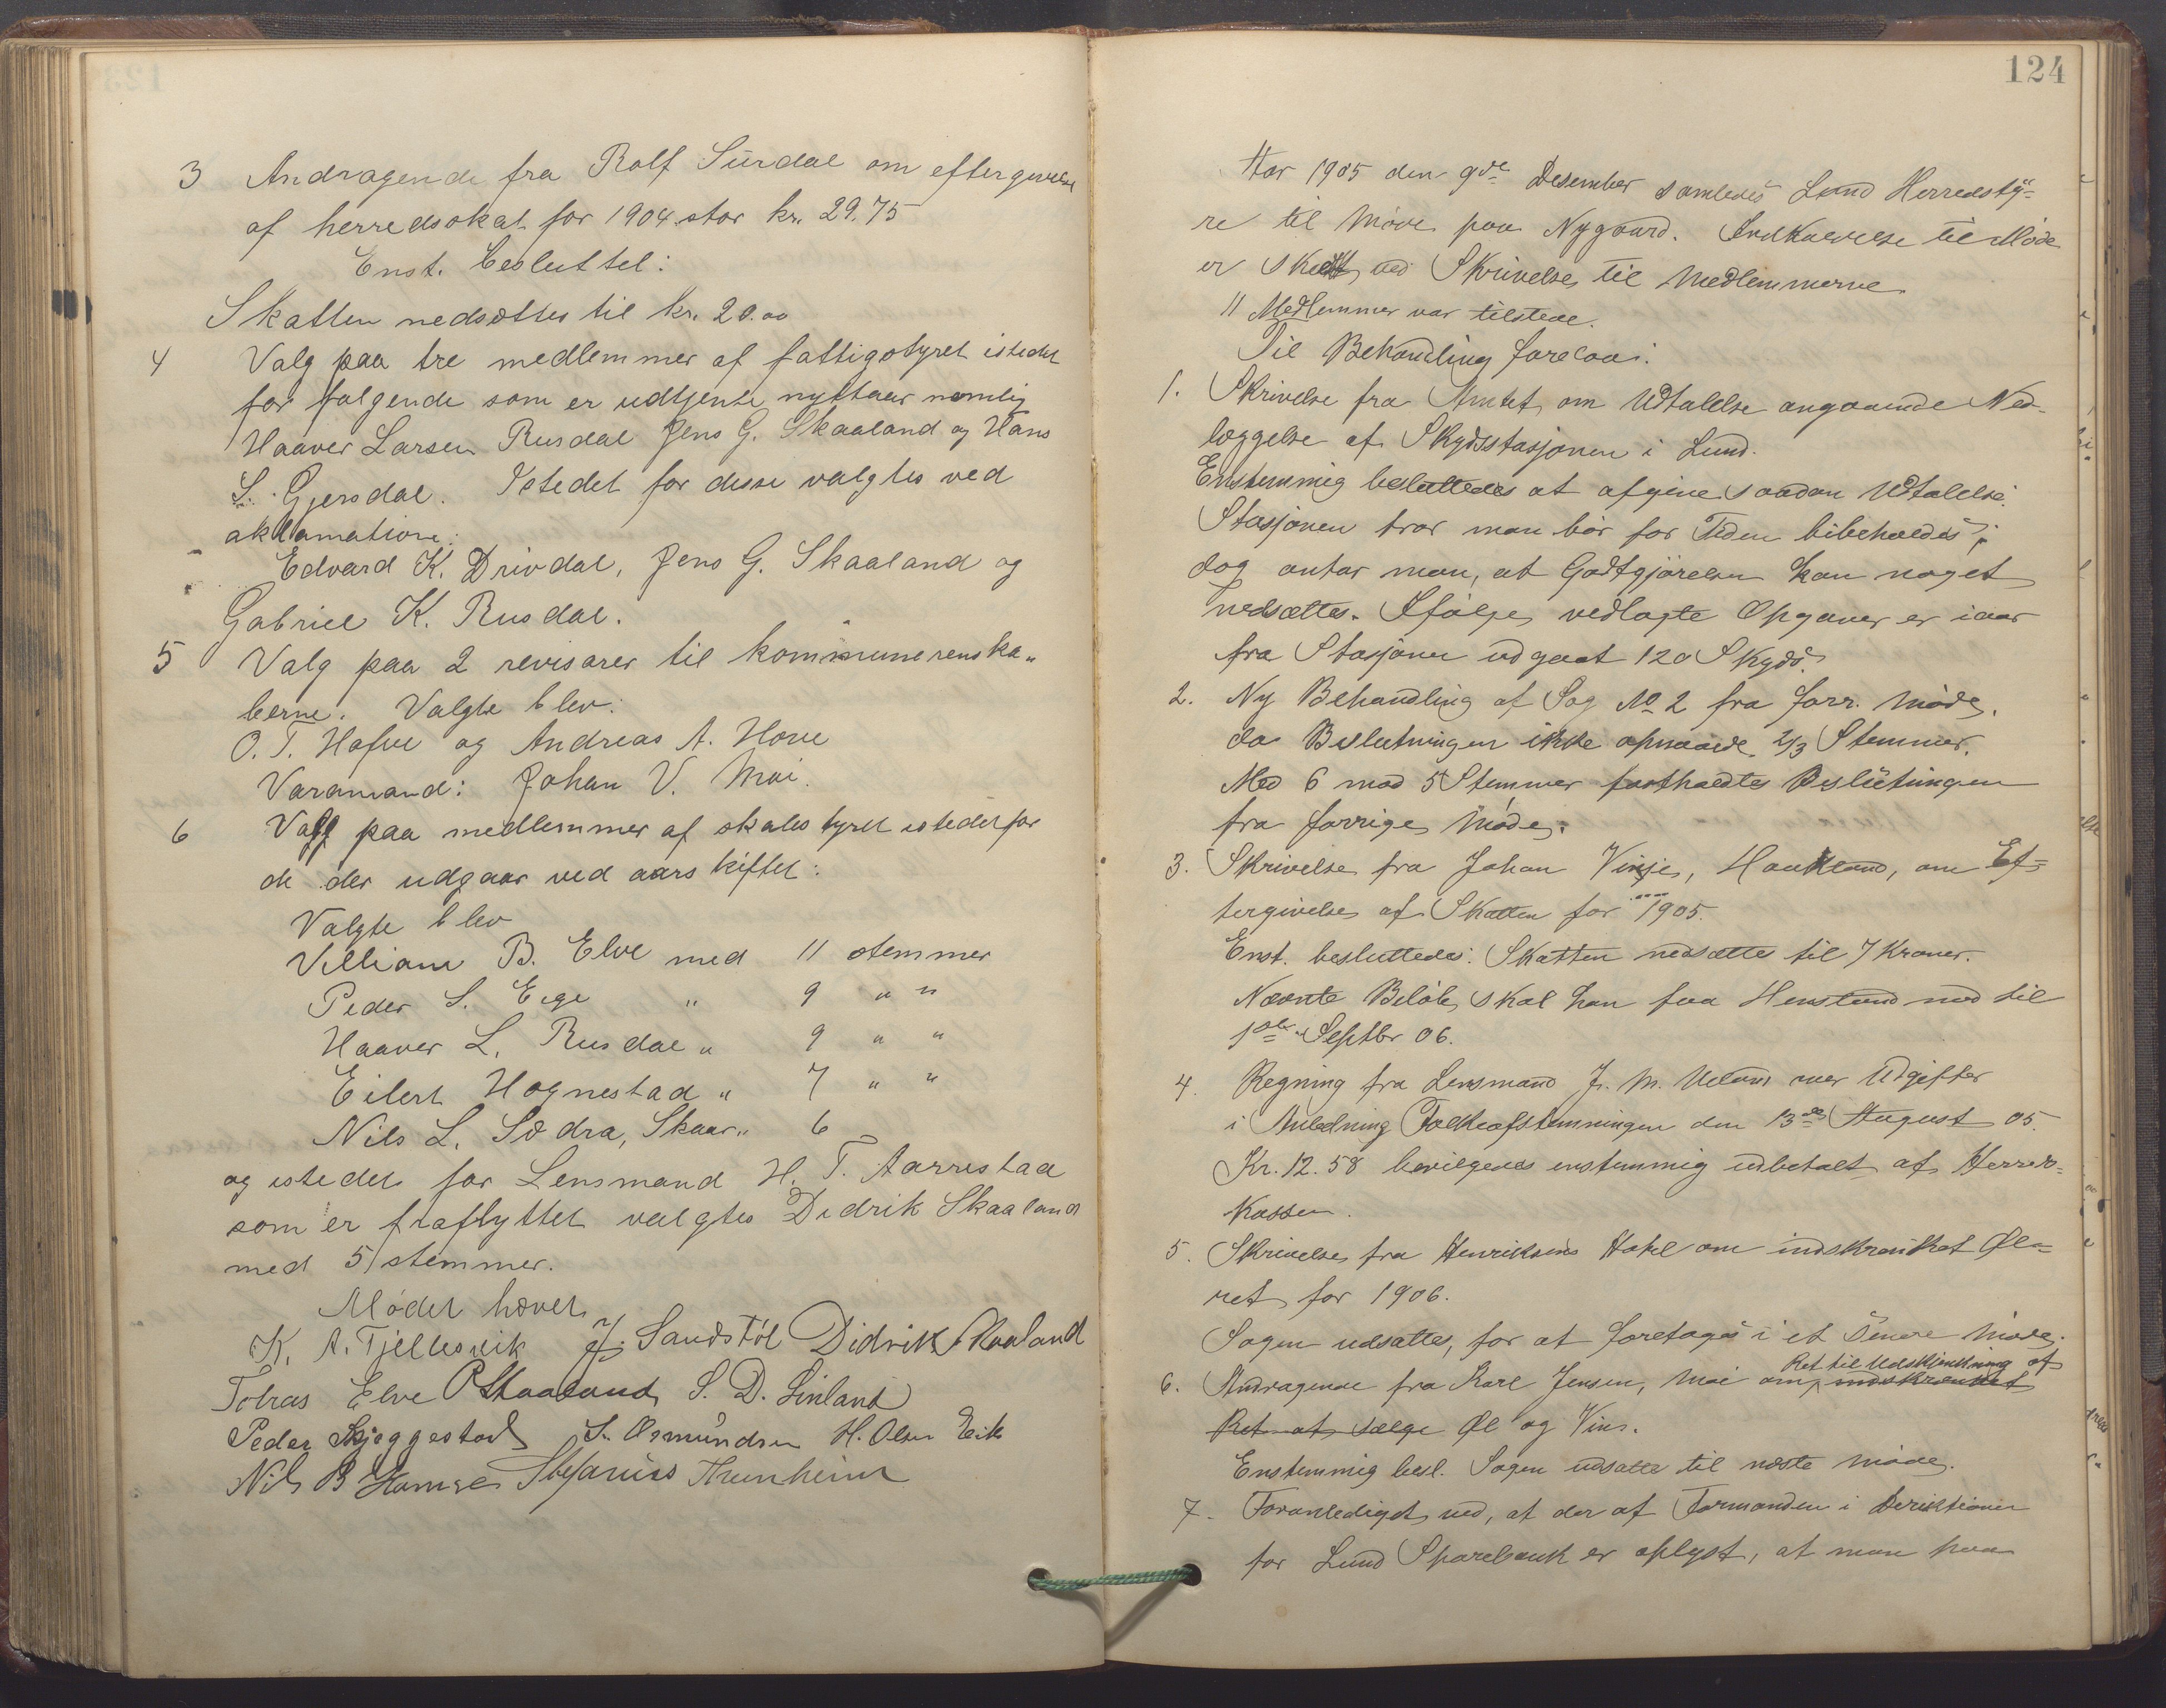 3 Andragende fra Rolf Sirdal om eftergivelse
af herredsskat for 1904 stor kr. 29.75
Enst. besluttet:
Skatten nedsættes til kr. 20.00
4 Valg paa tre medlemmer af fattigstyret istedet
for følgende som er udtjente nyttaar nemlig
Haaver Larsen Rusdal Jens G. Skaaland og Hans
L. Gjersdal. Istedet for disse valgtes ved
aklamation:
Edvard K. Drivdal, Jens G. Skaaland og
Gabriel K. Rusdal.
5 Valg paa 2 revisorer til kommunerenska„
berne. Valgte blev:
O. T. Hafve og Andreas A. Hove
Varamand: Johan V. Moi.
6 Valg paa medlemmer af skolestyret istedetfor
de der udgaar ved aarskiftet:
Valgte blev
Villiam B. Elve med 11 stemmer
Peder S. Eige „ 9 „ „
Haaver L. Rusdal „ 9 „ „
Eilert Hognestad „ 7 „ „
Nils L. Sødra, Skaar „ 6
og istedet for Lensmand H. T. Aarrestad
som er fraflyttet valgtes Didrik Skaaland
med 5 stemmer.
Mødet hævet
K. A. Tjellesvik J. Sandstøl Didrik Skaaland
Tobias Elve P Skaaland S. D. Linland
Peder Skjeggestad L. Osmundsen H. Olsen Eik
Nils B Hamre Thunheim
124
Aar 1905 den 9de Desember samledes Lund Herredsty=
re til Møde paa Nygaard. Indkaldelse til Møde
er skeet ved Skrivelse til Medlemmerne.
11 Medlemmer var tilstede.
Til Behandling forelaa:
1. Skrivelse fra Amtet om Udtalelse angaaende Ned=
læggelse af Skydsstasjonen i Lund.
Enstemmig besluttedes at afgive saadan Udtalelse:
Stasjonen tror man bør for Tiden bibeholdes;
dog antar man, at Godtgjørelsen kan noget
nedsættes. Ifølge vedlagte Opgaver er iaar
fra Stasjonen udgaat 120 Skyds.
2. Ny Behandling af Sag No 2 fra forr. Møde,
da Beslutningen ikke opnaaede 2/3 Stemmer.
Med 6 mod 5 Stemmer fastholdtes Beslutningen
fra forrige Møde.
3. Skrivelse fra Johan Vinje, Haukland, om Ef=
tergivelse af Skatten for 1905.
Enst. besluttedes: Skatten nedsættes til 7 Kroner.
Nævnte Beløb skal han faa Henstand med til
1ste Septbr 06.
4. Regning fra Lensmand J. M. Ueland over Udgifter
i Anledning Folkeafstemningen den 13de August 05.
Kr. 12.58 bevilgedes enstemmig udbetalt af Herreds=
kassen.
5. Skrivelse fra Henriksens Hotel om indskrænket Øl=
ret for 1906.
Sagen udsattes, for at foretages i et senere Møde.
6. Andragende fra Karl Jensen, Moi om indskrænket Ret til Udskjænkning af
Ret at sælge Øl og Vin.
Enstemmig besl. Sagen udsatte til næste Møde.
7. Foranlediget ved, at der af Formanden i Direktionen
for Lund Sparebank er oplyst, at man paa